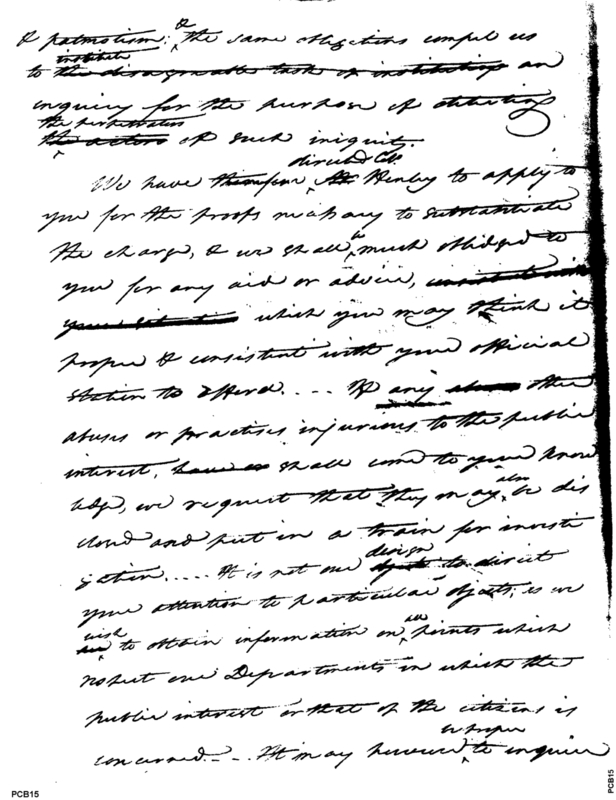 & patriotism: & the same obligations compel us
institute
to the disagreeable task of instituting an
inquiry for the purpose of detecting
the perpetrators
the actors of such iniquity.
directed Col.
We have therefore Mr Henley to apply to
you for the proofs necessary to substantiate
the charge, & we shall be much obliged to
you for any aid or advice,
which you may think it
proper & consistent with your official
station to afford.... If any other
abuses or practises injurious to the public
interest, shall come to your know
ledge, we request that they may also be dis
closed and put in a train for investi
gation..... It is not our design objects to direct
your attention to particular objects, as we
wish to obtain information on all points which
respect our Departments in which the
public interest or that of the citizens is
concerned.... It may however be proper to inquire
PCB15
PCB15